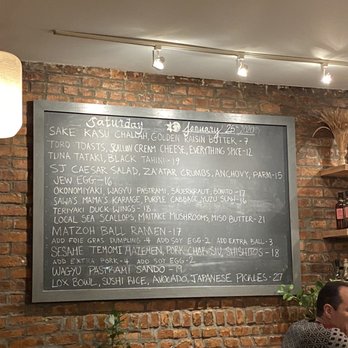 Saturday January 25th 2020
SAKE KASU CHALLAH, GOLDEN RAISIN BUTTER - 7
TORO TOASTS, SCALLION CREAM CHEESE, EVERYTHING SPICE - 12
TUNA TATAKI, BLACK TAHINI - 19
SJ CAESAR SALAD, ZA'ATAR CRUMBS, ANCHOVY, PARM - 15
JEW EGG - 16
OKONOMIYAKI, WAGYU PASTRAMI, SAUERKRAUT, BONITO - 17
SAWA'S MAMA'S KARAAGE, PURPLE CABBAGE, YUZU SUMI - 16
TERIYAKI DUCK WINGS - 18
LOCAL SEA SCALLOPS, MAITAKE MUSHROOMS, MISO BUTTER - 21
MATZOH BALL RAMEN - 17
ADD FOIE GRAS DUMPLING - 4 ADD SOY EGG - 2 ADD EXTRA BALL - 3
SESAME TEMOMI MAZEMEN, PORK CHAR SIU, SHISHITOS - 18
ADD EXTRA PORK - 4 ADD SOY EGG - 2
WAGYU PASTRAMI SANDO - 19
LOX BOWL, SUSHI RICE, AVOCADO, JAPANESE PICKLES - 27